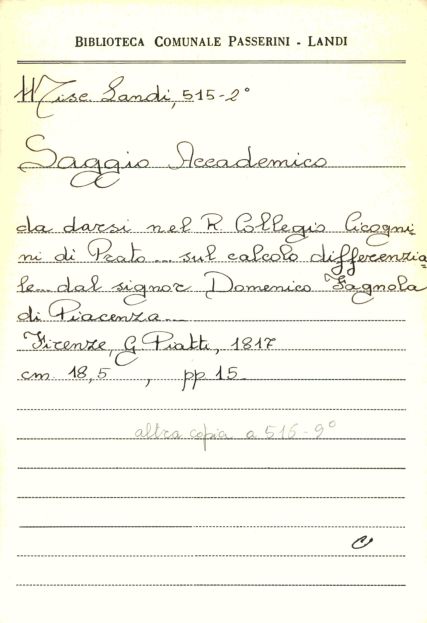 BIBLIOTECA COMUNALE PASSERINI - LANDI
Misc. Landi, 515-2°
Saggio Accademico
da darsi nel R. Collegio Cicogni=
ni di Prato... sul calcolo differenzia=
le... dal signor Domenico Fagnola
di Piacenza...
Firenze, G. Piatti, 1817
cm. 18,5 , pp 15.
altra copia a 515-9°